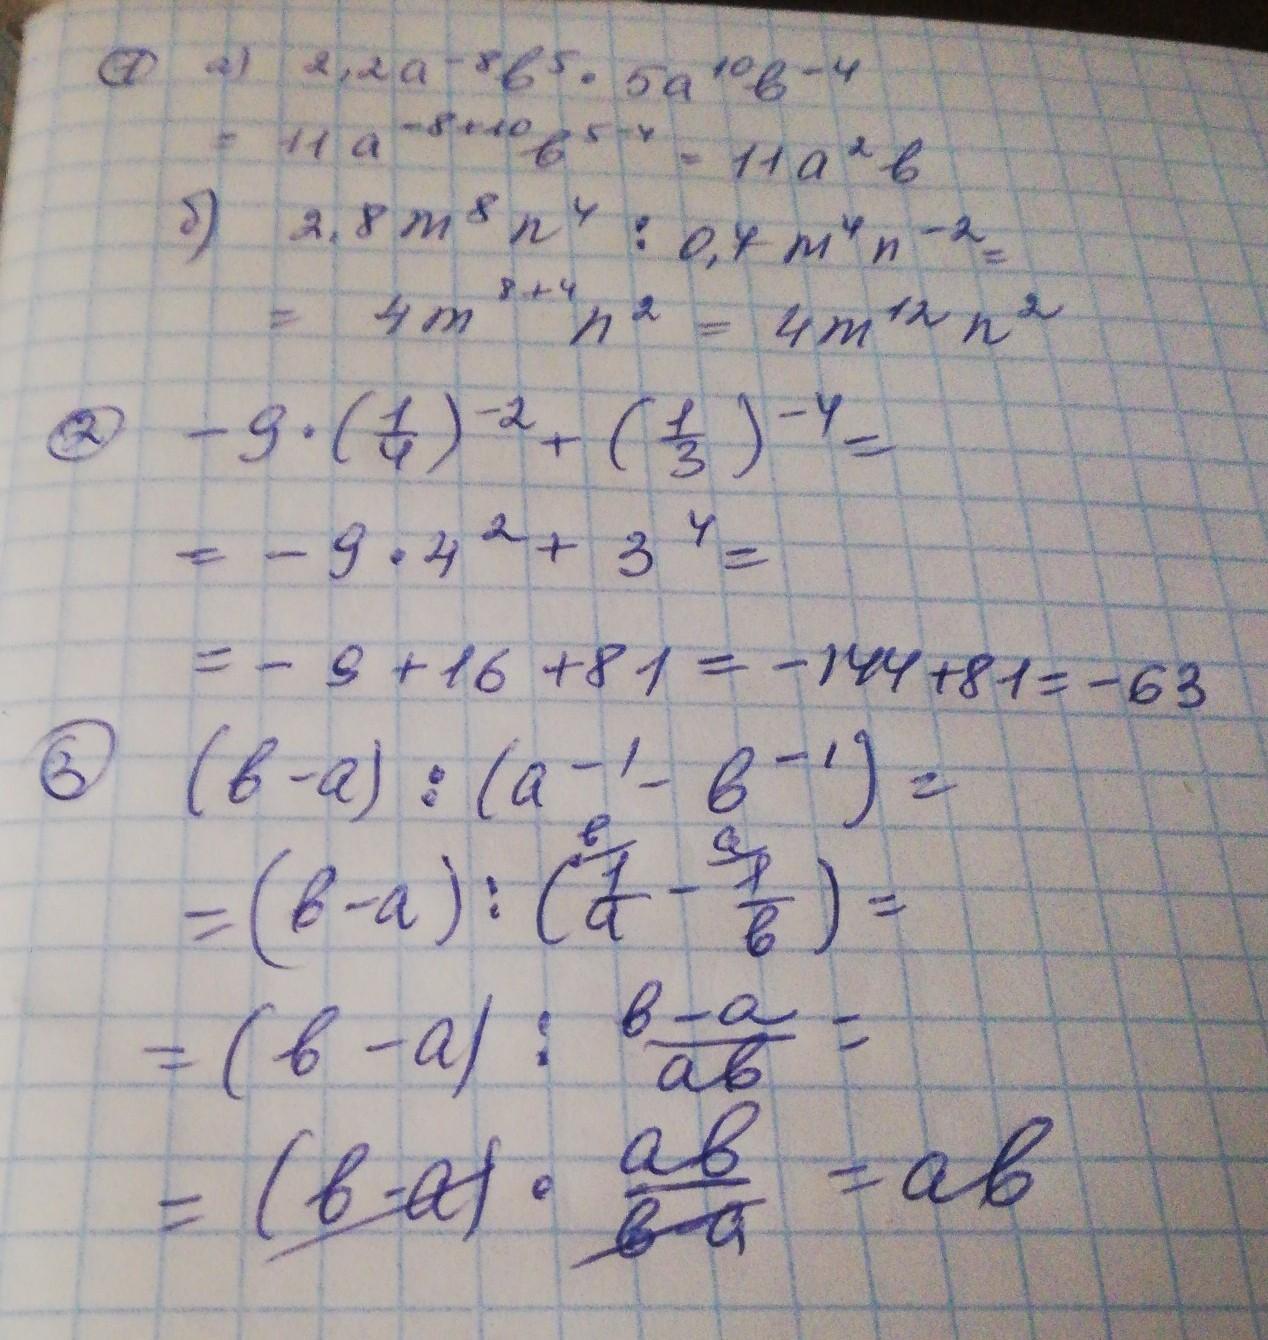 ① а) 2,2a⁻⁸b⁵ · 5a¹⁰b⁻⁴
= 11a⁻⁸⁺¹⁰b⁵⁻⁴ = 11a²b
б) 2,8m⁸n⁴ : 0,7m⁴n⁻² =
= 4m⁸⁺⁴n² = 4m¹²n²
② -9 · (1/4)⁻² + (1/3)⁻⁴ =
= -9 · 4² + 3⁴ =
= -9 + 16 + 81 = -144 + 81 = -63
③ (b - a) : (a⁻¹ - b⁻¹) =
b a
= (b - a) : (1/a - 1/b) =
= (b - a) : (b - a)/(ab) =
= (b - a) · (ab)/(b - a) = ab